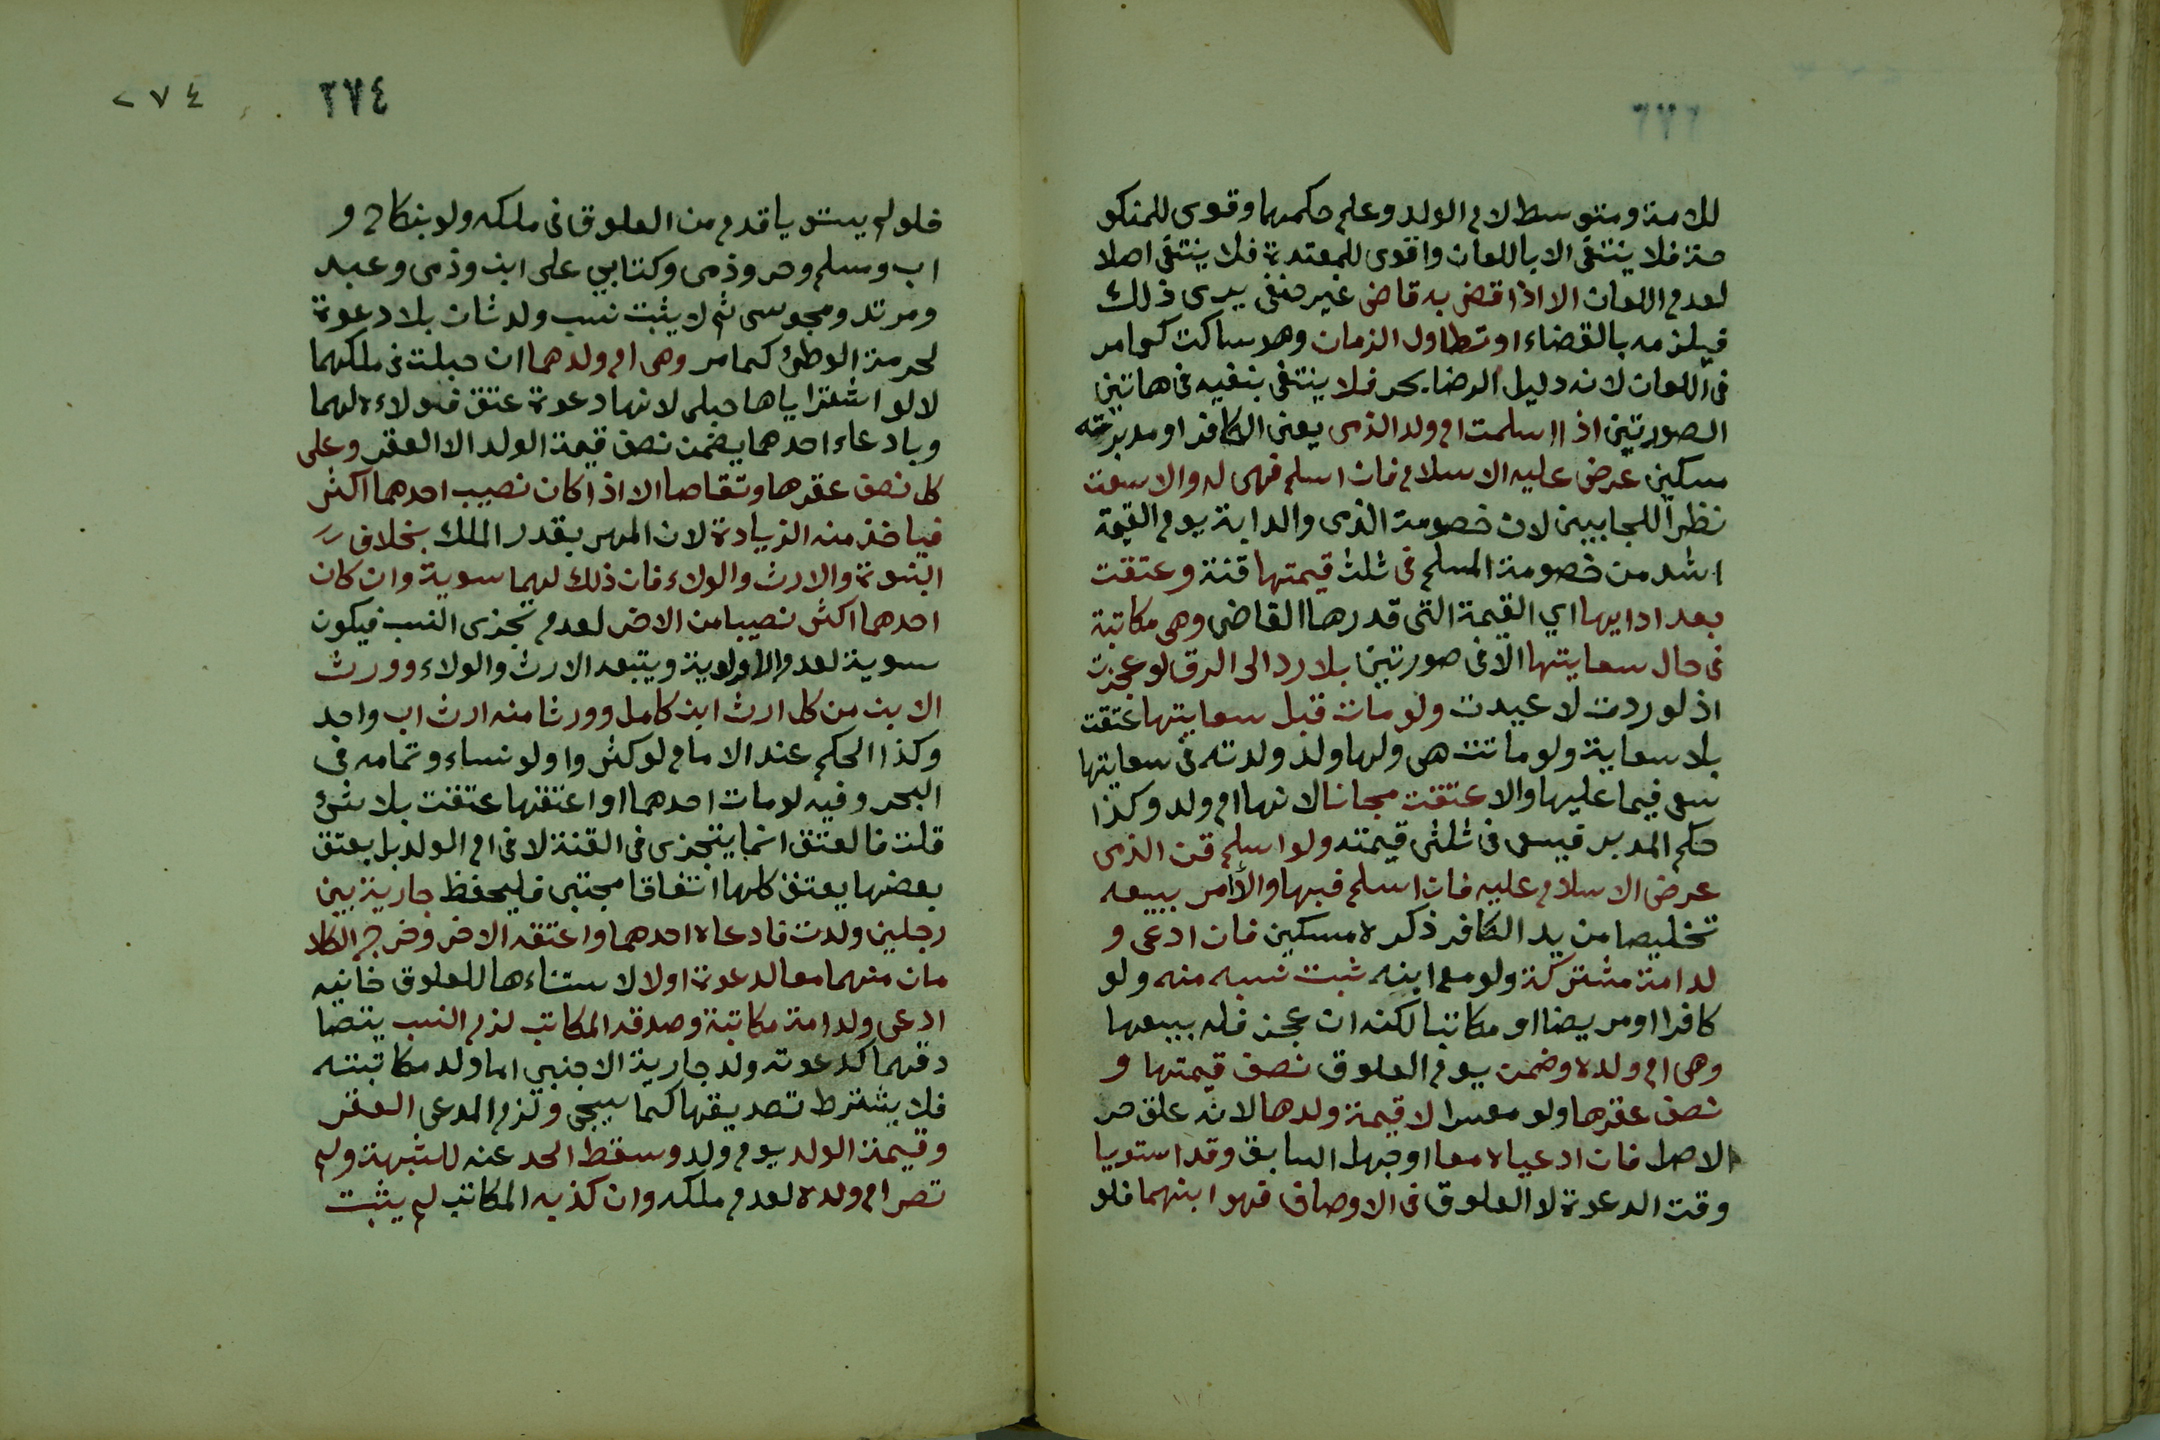 للامة ومتوسط لام الولد وعلم حكمهما وقوى للمنكو
حة فلا ينتفى الا باللعان واقوى للمعتدة فلا ينتفى اصلا
لعدم اللعان الا اذا قضى به قاض غير حنفى يرى ذلك
فيلزمه بالقضاء او تطاول الزمان وهو ساكت كما مر
فى اللعان لانه دليل الرضا بحر فلا ينتفى بنفيه فى هاتين
الصورتين اذا اسلمت ام ولد الذمى يعنى الكافر او مدبرته
مسكين عرض عليه الاسلام فان اسلم فهى له والا سعت
نظرا للجانبين لان خصومة الذمى والدابة يوم القيمة
اشد من خصومة المسلم فى ثلث قيمتها قنة وعتقت
بعد ادايها اي القيمة التى قدرها القاضى وهى مكاتبة
فى حال سعايتها الا فى صورتين بلا رد الى الرق لو عجزت
اذ لو ردت لاعيدت ولو مات قبل سعايتها عتقت
بلا سعاية ولو ماتت هى ولها ولد ولدته فى سعايتها
سعى فيما عليها والا عتقت مجانا لانها ام ولد وكذا
حكم المدبر فيسعى فى ثلثى قيمته ولو اسلم قن الذمى
عرض الاسلام عليه فان اسلم فبها والا امر ببيعه
تخليصا من يد الكافر ذكره مسكين فان ادعى و
لد امة مشتركة ولو مع ابنه ثبت نسبه منه ولو
كافرا او مريضا او مكاتبا لكنه ان عجز فله بيعها
وهى ام ولده وضمن يوم العلوق نصف قيمتها و
نصف عقرها ولو معسرا لا قيمة ولدها لانه علق حر
الاصل فان ادعياه معا او جهل السابق وقد استويا
وقت الدعوة لا العلوق فى الاوصاف فهو ابنهما فلو
٢٧٤
٢٧٤
فلو لم يستويا قدم من العلوق فى ملكه ولو بنكاح و
اب ومسلم وحر وذمى وكتابي على ابن وذمى وعبد
ومرتد ومجوسى ثم لا يثبت نسب ولد ثان بلا دعوة
لحرمة الوطئ كما مر وهى ام ولدهما ان حبلت فى ملكهما
لا لو اشترياها حبلى لانها دعوة عتق فولاءه لهما
وبادعاء احدهما يضمن نصف قيمة الولد لا العقر وعلى
كل نصف عقرها وتقاصا الا اذا كان نصيب احدهما اكثر
فياخذ منه الزيادة لان المهر بقدر الملك بخلاف
البنوة والارث والولاء فان ذلك لهما سوية وان كان
احدهما اكثر نصيبا من الاخر لعدم تجزى النسب فيكون
سوية لعدم الاولوية ويتبعه الارث والولاء وورث
الابن من كل ارث ابن كامل وورثا منه ارث اب واحد
وكذا الحكم عند الامام لو كثروا ولو نساء وتمامه فى
البحر وفيه لو مات احدهما او اعتقها عتقت بلا شئ
قلت فالعتق انما يتجزى فى القنة لا فى ام الولد بل يعتق
بعضها يعتق كلها اتفاقا مجتبى فليحفظ جارية بين
رجلين ولدت فادعاه احدهما واعتقه الاخر وخرج الكلا
مان منهما معا الدعوة اولا لاستناءها للعلوق خانيه
ادعى ولد امة مكاتبة وصدقه المكاتب لزم النسب بتصا
دقهما كدعوته ولد جارية الاجنبي اما ولد مكاتبته
فلا يشترط تصديقها كما سيجى ولزم المدعى العقر
وقيمة الولد يوم ولد وسقط الحد عنه للشبهة ولم
تصر ام ولده لعدم ملكه وان كذبه المكاتب لم يثبت